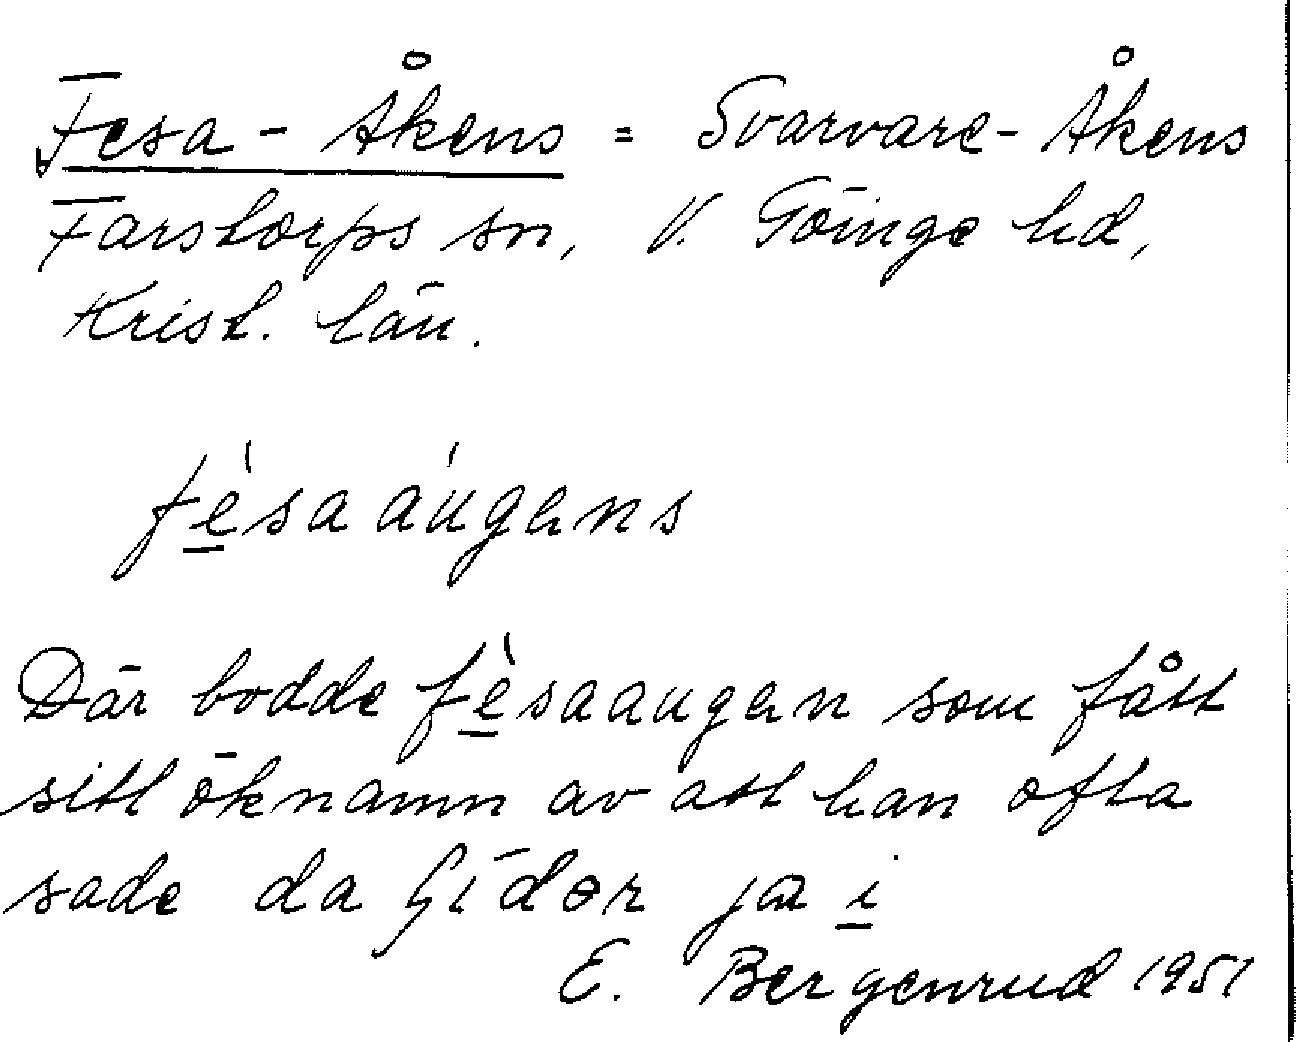 Fesa-Åkens = Svarvare-Åkens
Farstorps sn, V. Göinge hd,
Krist. län.
fèsaáugens
Där bodde fèsaaugen som fått
sitt öknamn av att han ofta
sade da ja i
E. Bergenrud 1951